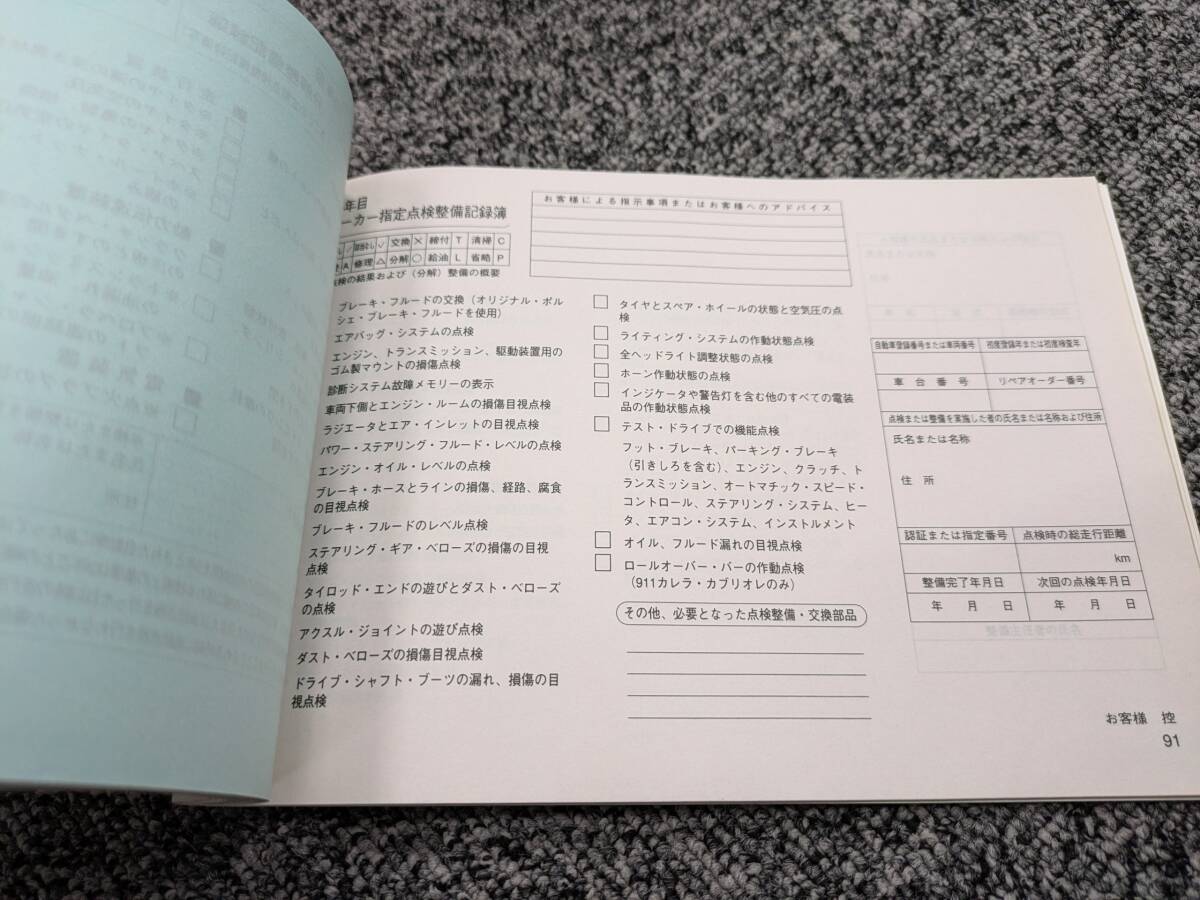 年目
ーカー指定点検整備記録簿
交換 × 締付 T 清掃 C
A 修理 △ 分解 ○ 給油 L 省略 P
検の結果および（分解）整備の概要
お客様による指示事項またはお客様へのアドバイス
ブレーキ・フルードの交換（オリジナル・ポル
シェ・ブレーキ・フルードを使用）
エアバッグ・システムの点検
エンジン、トランスミッション、駆動装置用の
ゴム製マウントの損傷点検
診断システム故障メモリーの表示
車両下側とエンジン・ルームの損傷目視点検
ラジエータとエア・インレットの目視点検
パワー・ステアリング・フルード・レベルの点検
エンジン・オイル・レベルの点検
ブレーキ・ホースとラインの損傷、経路、腐食
の目視点検
ブレーキ・フルードのレベル点検
ステアリング・ギア・ベローズの損傷の目視
点検
タイロッド・エンドの遊びとダスト・ベローズ
の点検
アクスル・ジョイントの遊び点検
ダスト・ベローズの損傷目視点検
ドライブ・シャフト・ブーツの漏れ、損傷の目
視点検
タイヤとスペア・ホイールの状態と空気圧の点
検
ライティング・システムの作動状態点検
全ヘッドライト調整状態の点検
ホーン作動状態の点検
インジケータや警告灯を含む他のすべての電装
品の作動状態点検
テスト・ドライブでの機能点検
フット・ブレーキ、パーキング・ブレーキ
（引きしろを含む）、エンジン、クラッチ、ト
ランスミッション、オートマチック・スピード・
コントロール、ステアリング・システム、ヒー
タ、エアコン・システム、インストルメント
オイル、フルード漏れの目視点検
ロールオーバー・バーの作動点検
（911カレラ・カブリオレのみ）
その他、必要となった点検整備・交換部品
自動車登録番号または車両番号 初度登録年または初度検査年
車台番号 リペアオーダー番号
点検または整備を実施した者の氏名または名称および住所
氏名または名称
住所
認証または指定番号 点検時の総走行距離
km
整備完了年月日 次回の点検年月日
年 月 日 年 月 日
整備主任者の氏名
お客様 控
91